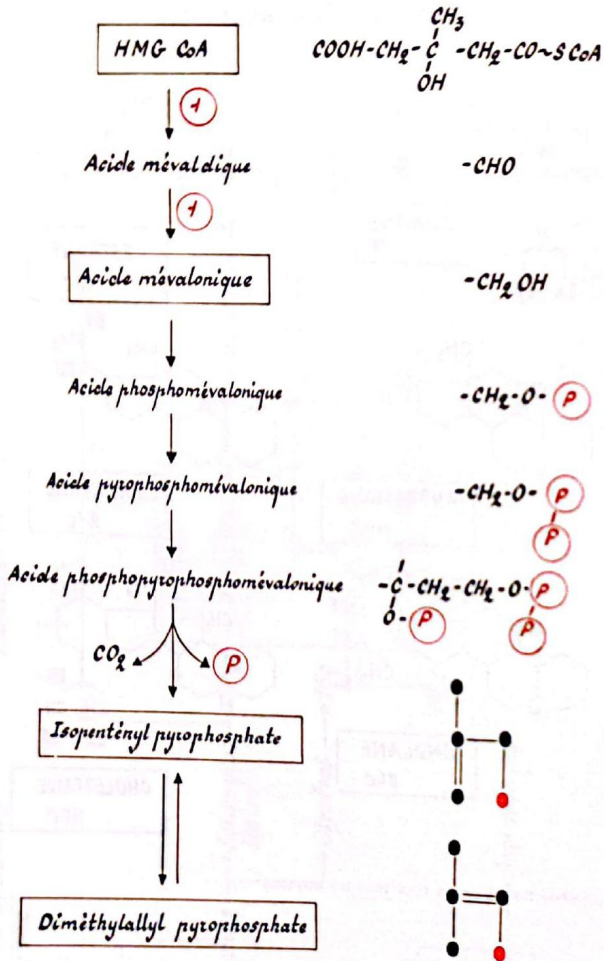 CH3
HMG CoA
COOH-CH2-C-CH2-CO~SCoA
OH
1
Acide mévaldique
-CHO
1
Acide mévalonique
-CH2OH
Acide phosphomévalonique
-CH2-O-P
Acide pyrophosphomévalonique
-CH2-O-P
P
Acide phosphopyrophosphomévalonique
-C-CH2-CH2-O-P
O-P
P
CO2
P
Isopentényl pyrophosphate
Diméthylallyl pyrophosphate